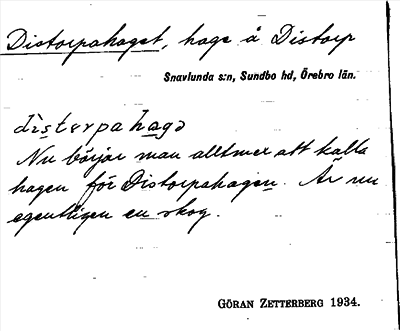 Distorpahaget, hage å Distorp
Snavlunda s:n, Sundbo hd, Örebro län.
dìsterpahagə
Nu börjar man alltmer att kalla
hagen för Distorpahagen. Är nu
egentligen en skog.
GÖRAN ZETTERBERG 1934.